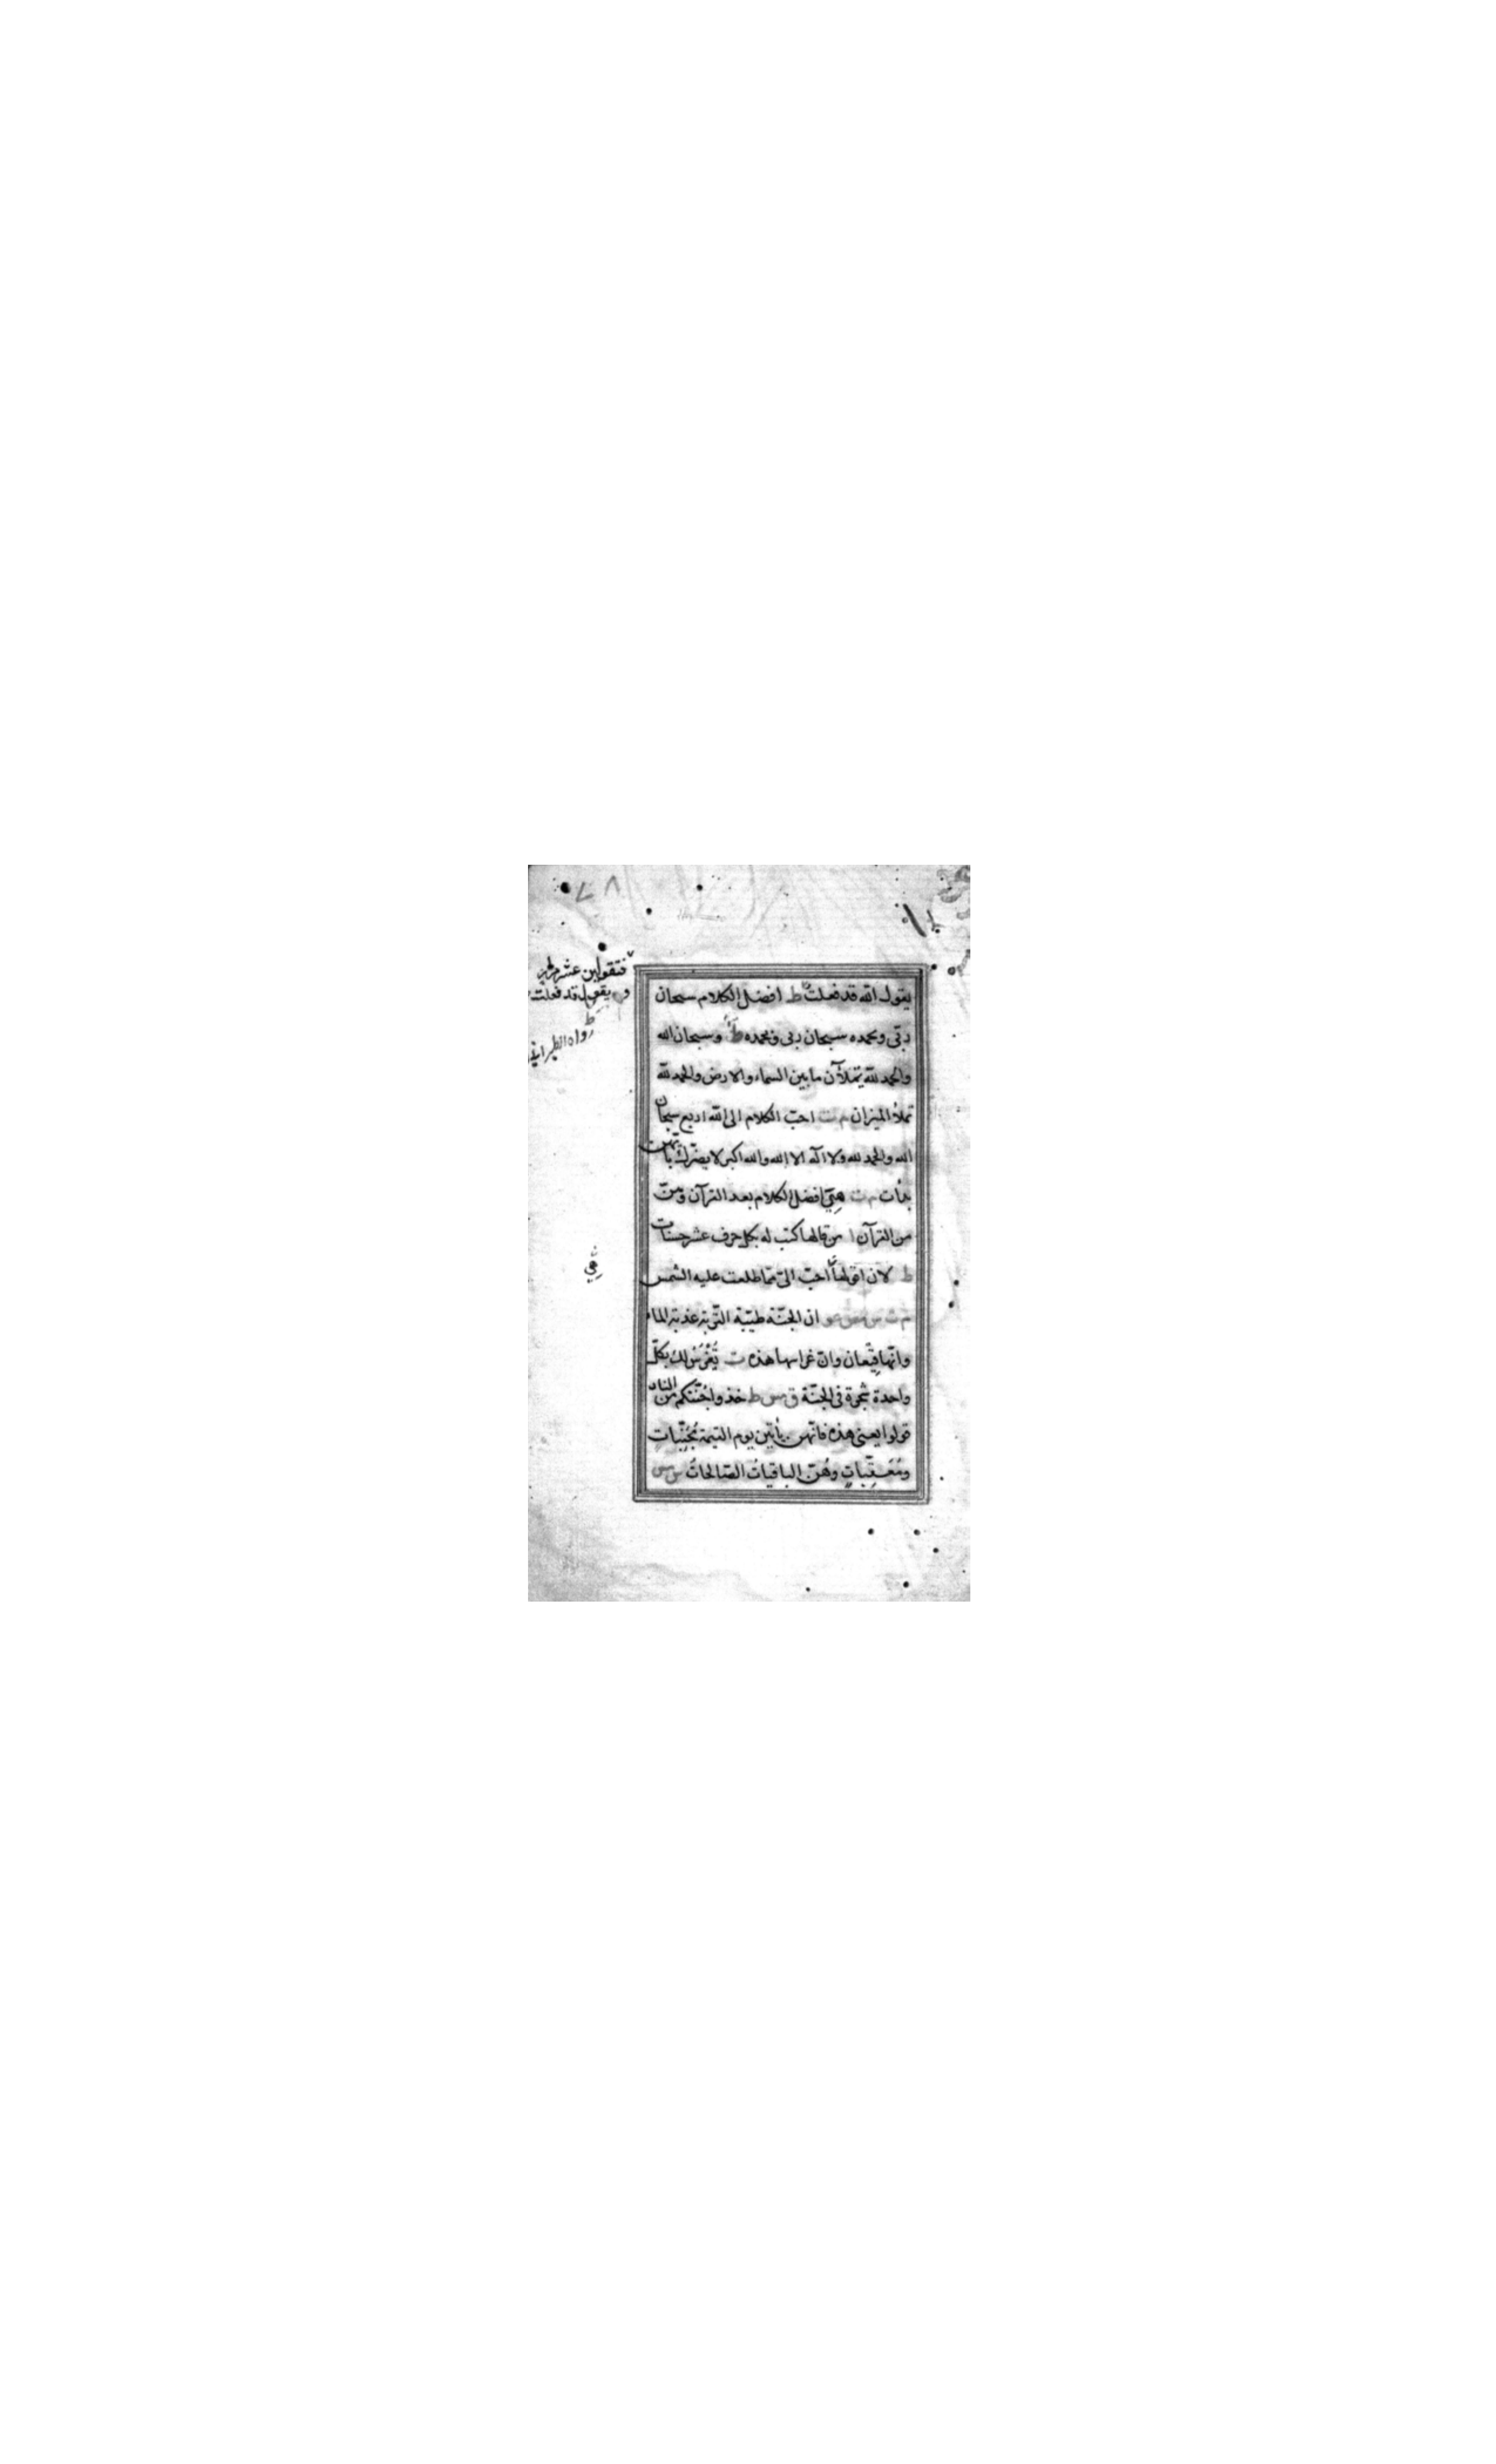 يقول الله قد فعلت ط افضل الكلام سبحان
ربّى وبحمده سبحان ربى وبحمده ط وسبحان الله
والحمد لله يملآن ما بين السماء والارض والحمد لله
تملأ الميزان م ت احبّ الكلام الى الله اربع سبحان
الله والحمد لله ولا اله الا الله والله اكبر لا يضرّك بايّهن
بدأت م ت هى افضل الكلام بعد القرآن وهنّ
من القرآن ا من قالها كتب له بكل حرف عشر حسنات
ط لان اقولها احبّ الىّ مما طلعت عليه الشمس
م ت س مص عو ان الجنّة طيّبة التّربة عذبة الماء
وانّها قِيْعان وانّ غراسها هذه ت يُغْرَسُ لك بكلّ
واحدة شجرة فى الجنّة ق مس ط خذوا جُنّتكم من النار
قولوا يعنى هذه فانّهن يأتين يوم القيمة مُجَنِّبات
ومُعَقِّباتٍ وهُنّ الباقياتُ الصّالحاتُ س مس
فتقولين عشر مرار
ويقول قد فعلت
ط
رواه الطبرانى
هِىَ